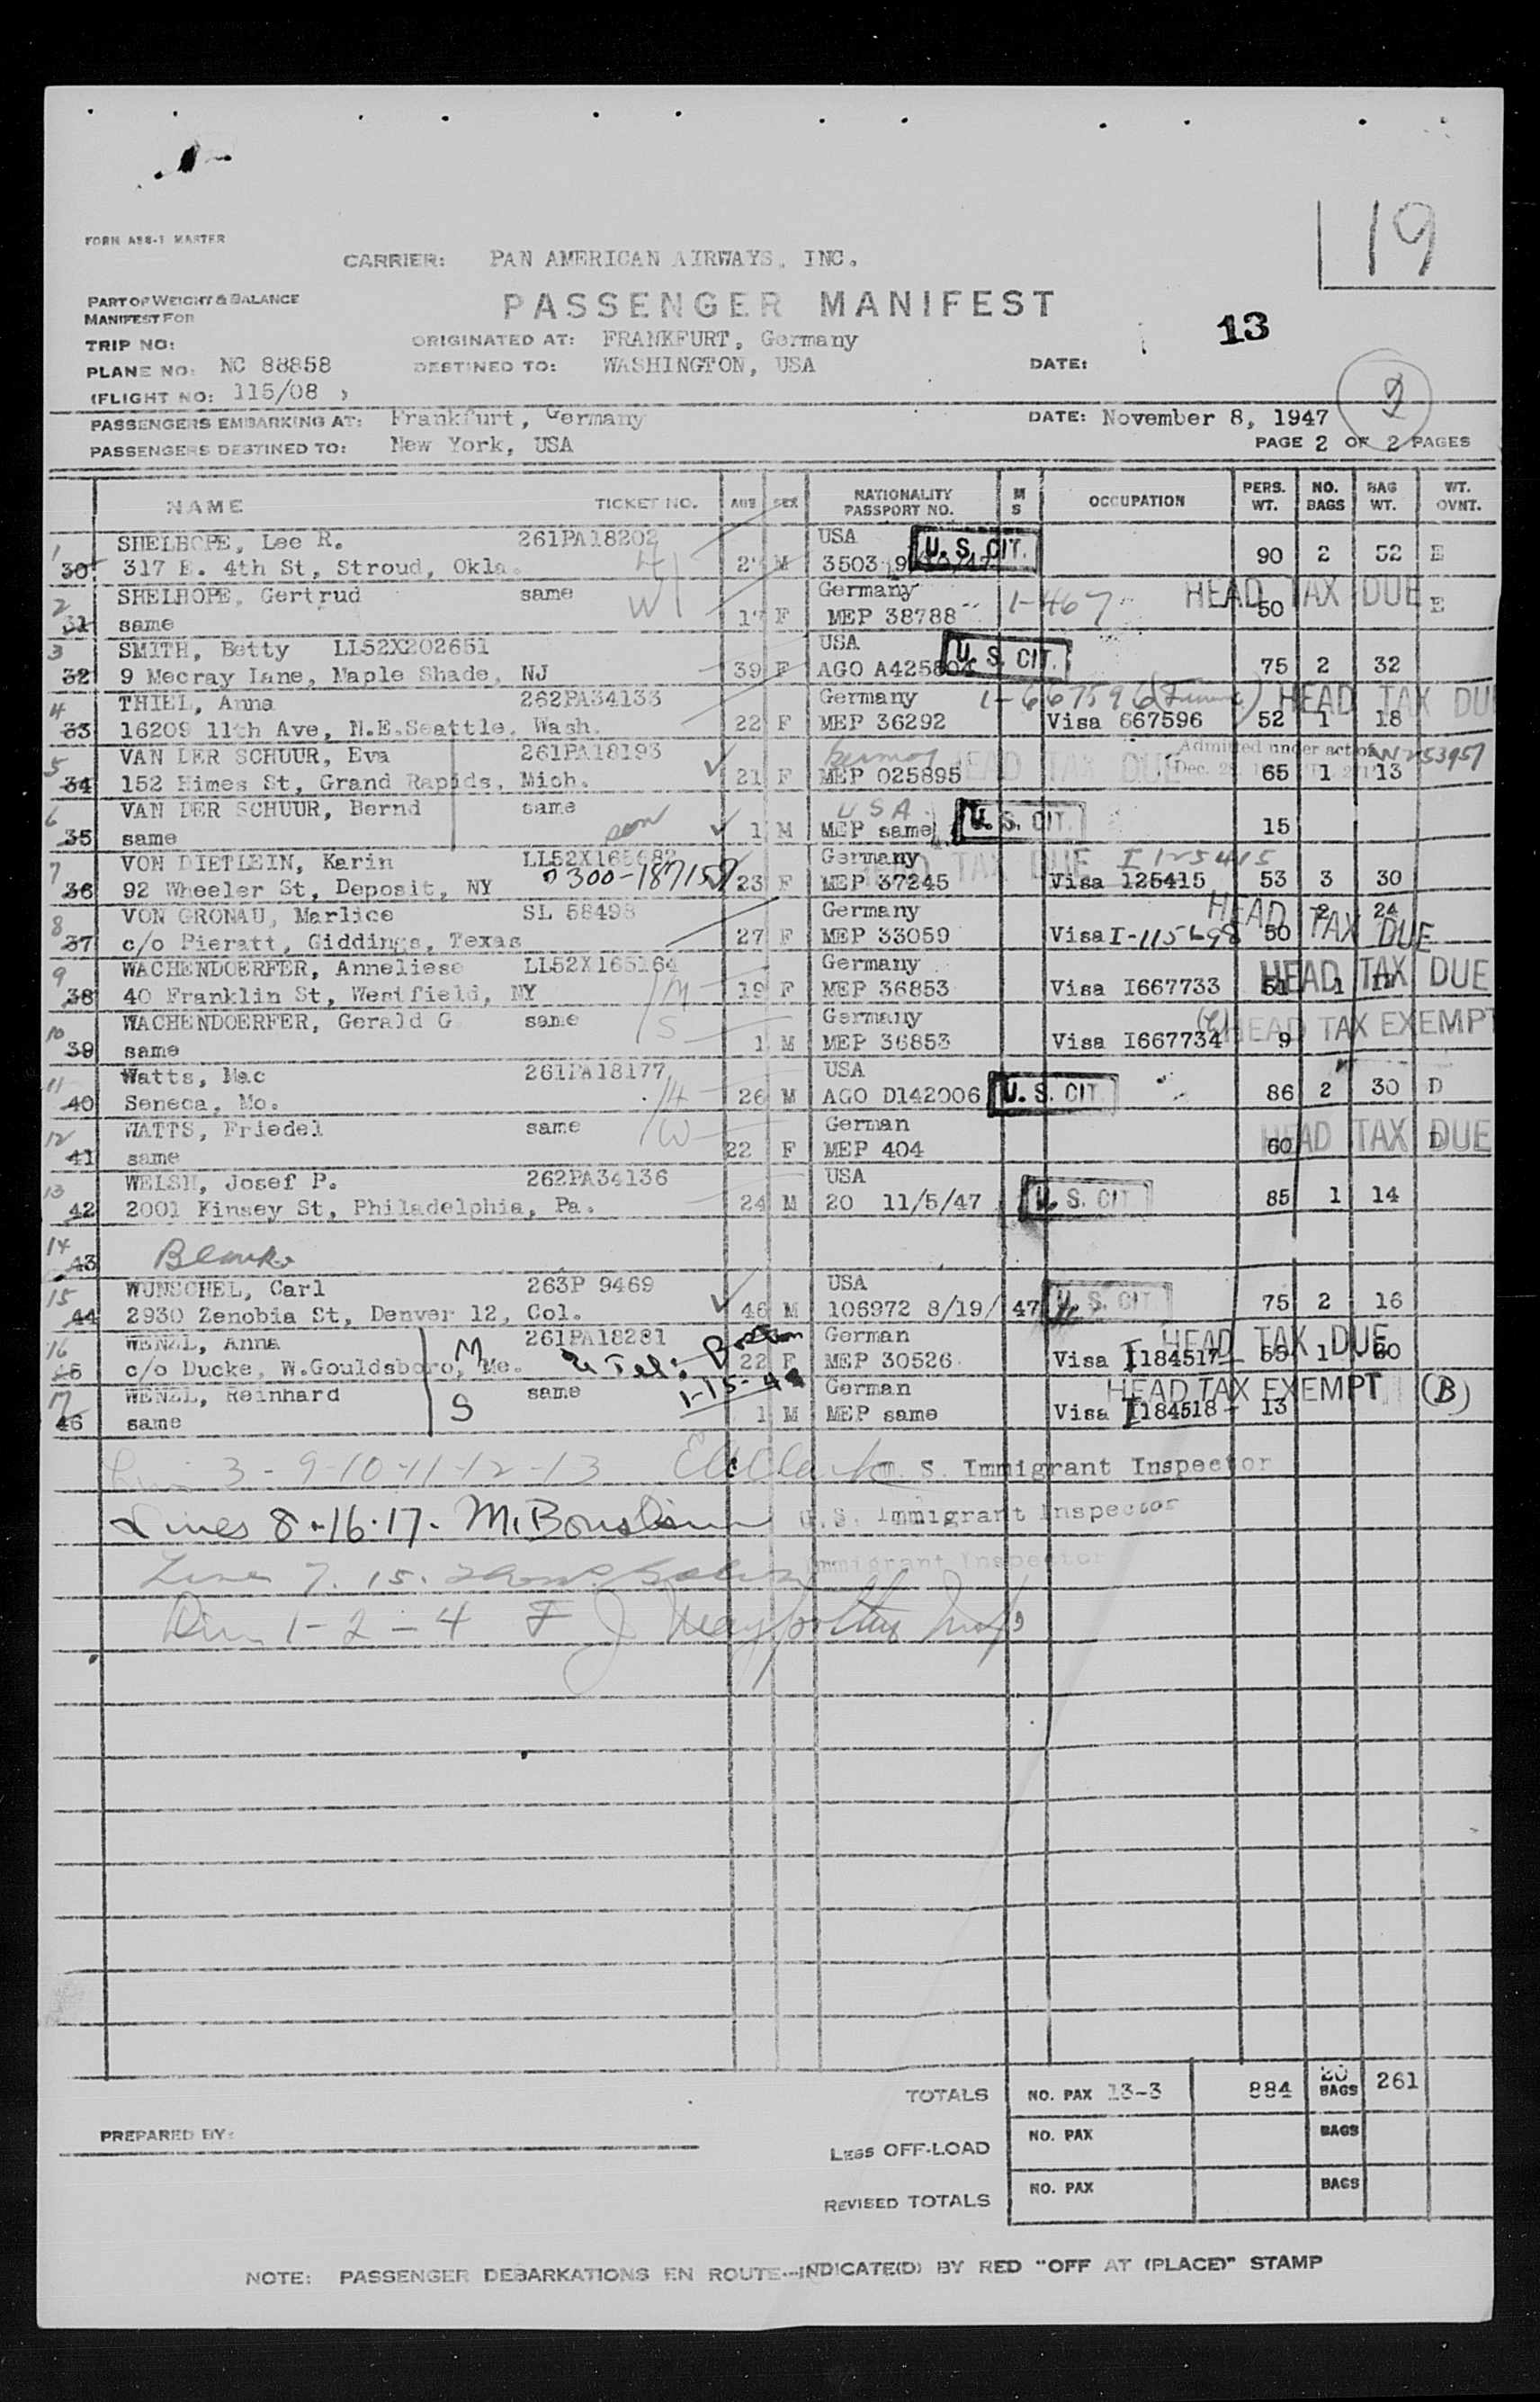 19
FORM A88-1 MASTER
CARRIER: PAN AMERICAN AIRWAYS, INC.
PART OF WEIGHT & BALANCE
MANIFEST FOR
PASSENGER MANIFEST
13
TRIP NO:
ORIGINATED AT: FRANKFURT, Germany
PLANE NO: NC 88858
DESTINED TO: WASHINGTON, USA
DATE:
(FLIGHT NO: 115/08 )
2
PASSENGERS EMBARKING AT: Frankfurt, Germany
DATE: November 8, 1947
PASSENGERS DESTINED TO: New York, USA
PAGE 2 OF 2 PAGES
NAME TICKET NO. AGE SEX NATIONALITY PASSPORT NO. M S OCCUPATION PERS. WT. NO. BAGS BAG WT. WT. OVNT.
1 SHELHOPE, Lee R. 261PA18202 H USA U. S. CIT.
30 317 E. 4th St, Stroud, Okla. M 3503 90 2 52 E
2 SHELHOPE, Gertrud same W Germany 1-467 HEAD TAX DUE
31 same F MEP 38788 50 E
3 SMITH, Betty LL52X202651 USA U. S. CIT.
32 9 Mecray Lane, Maple Shade, NJ 39 F AGO 75 2 32
4 THIEL, Anna 262PA34133 Germany 1-667596 HEAD TAX DUE
33 16209 11th Ave, N.E.Seattle, Wash. 22 F MEP 36292 Visa 667596 52 1 18
5 VAN DER SCHUUR, Eva 261PA18193 HEAD TAX DUE Admitted under act of
34 152 Himes St, Grand Rapids, Mich. 21 F MEP 025895 65 1 13
6 VAN DER SCHUUR, Bernd same USA U. S. CIT.
35 same son 1 M MEP same 15
7 VON DIETLEIN, Karin Germany HEAD TAX DUE I 125415
36 92 Wheeler St, Deposit, NY 0300-187157 23 F MEP 37245 Visa 125415 53 3 30
8 VON GRONAU, Marlice SL 58498 Germany HEAD TAX DUE 2 24
37 c/o Pieratt, Giddings, Texas 27 F MEP 33059 Visa I-115698 50
9 WACHENDOERFER, Anneliese LL52X165164 Germany HEAD TAX DUE
38 40 Franklin St, Westfield, NY M 19 F MEP 36853 Visa I667733 51 1
10 WACHENDOERFER, Gerald G same S Germany HEAD TAX EXEMPT
39 same 1 M MEP 36853 Visa I667734 9
11 Watts, Mac 261PA18177 H USA U. S. CIT.
40 Seneca, Mo. 26 M AGO D142006 86 2 30 D
12 WATTS, Friedel same W German HEAD TAX DUE
41 same 22 F MEP 404 60 D
13 WELSH, Josef P. 262PA34136 USA U. S. CIT
42 2001 Kinsey St, Philadelphia, Pa. 24 M 20 11/5/47 85 1 14
14
43 Blank
15 WUNSCHEL, Carl 263P 9469 USA U. S. CIT.
44 2930 Zenobia St, Denver 12, Col. 46 M 106972 8/19/47 75 2 16
16 WENZL, Anna M 261PA18281 German HEAD TAX DUE
45 c/o Ducke, W.Gouldsboro, Me. Tel: Boston 22 F MEP 30526 Visa I184517 55 1 60
17 WENZL, Reinhard S same 1-15-48 German HEAD TAX EXEMPT (B)
46 same 1 M MEP same Visa I184518 13
3-9-10-11-12-13 U. S. Immigrant Inspector
Lines 8-16-17. U.S. Immigrant Inspector
Lines 7. 15. Immigrant Inspector
1-2-4
TOTALS NO. PAX 13-3 884 20 BAGS 261
PREPARED BY:
LESS OFF-LOAD NO. PAX BAGS
REVISED TOTALS NO. PAX BAGS
NOTE: PASSENGER DEBARKATIONS EN ROUTE--INDICATE(D) BY RED "OFF AT (PLACE)" STAMP